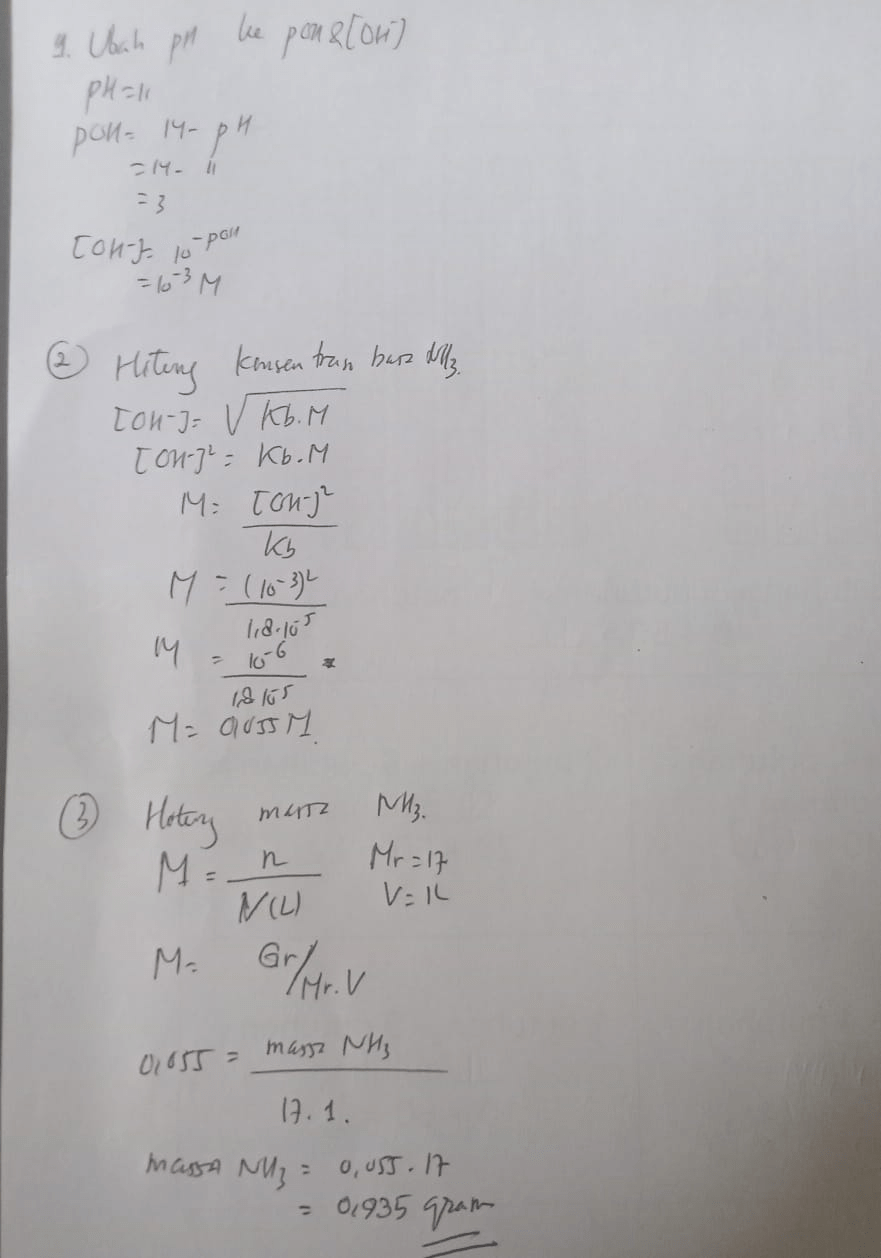 1. Ubah pH ke pOH & [OH-]
pH = 11
pOH = 14 - pH
= 14 - 11
= 3
[OH-] = 10^-pOH
= 10^-3 M
② Hitung konsentrasi basa NH3.
[OH-] = √Kb.M
[OH-]² = Kb.M
M = [OH-]²
Kb
M = (10^-3)²
1,8.10^-5
M = 10^-6
1,8 10^-5
M = 0,055 M.
③ Hitung massa NH3.
M = n Mr = 17
V(L) V = 1L
M = Gr/Mr.V
0,055 = massa NH3
17.1.
massa NH3 = 0,055.17
= 0,935 gram